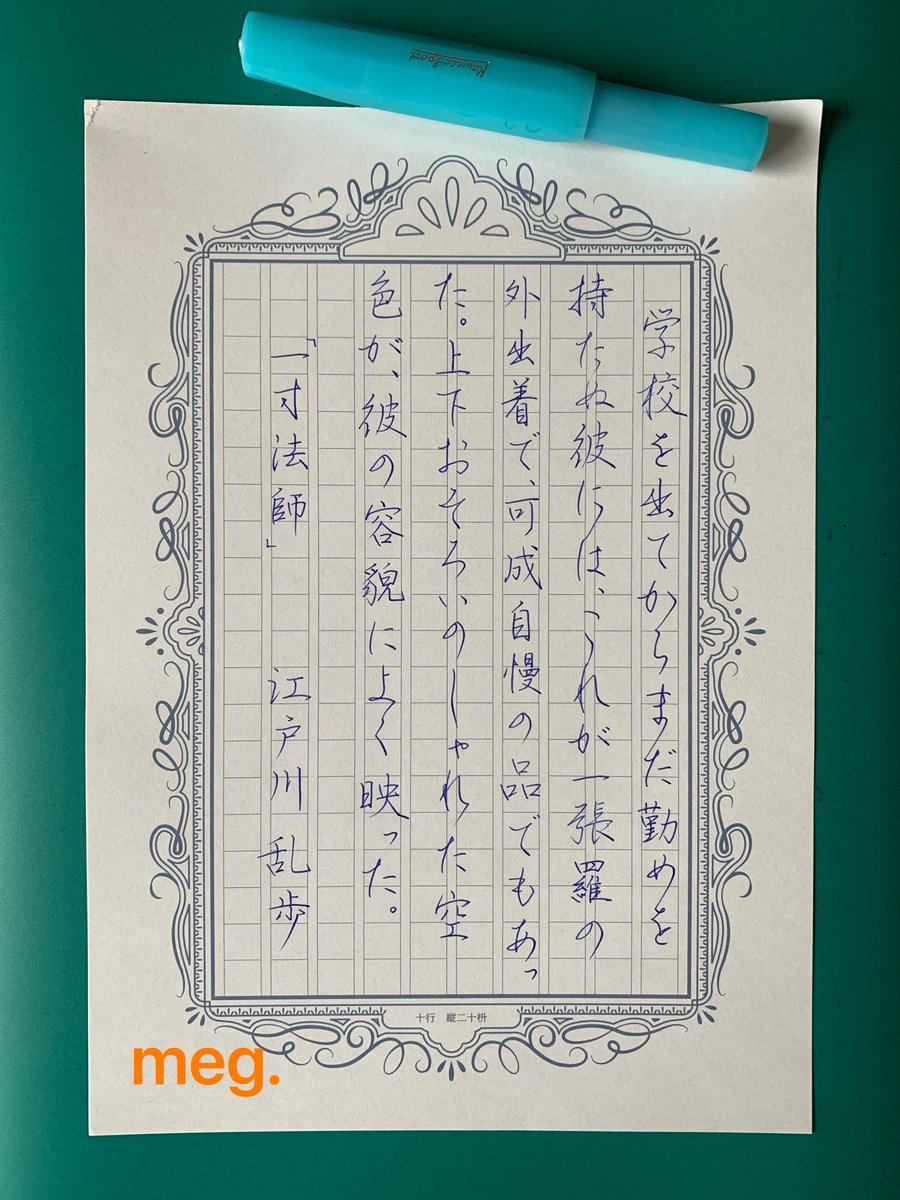 Kaweco Sport
学校を出てからまだ勤めを
持たぬ彼には、これが一張羅の
外出着で、可成自慢の品でもあっ
た。上下おそろいのしゃれた空
色が、彼の容貌によく映った。
「一寸法師」 江戸川乱歩
十行 縦二十枡
meg.